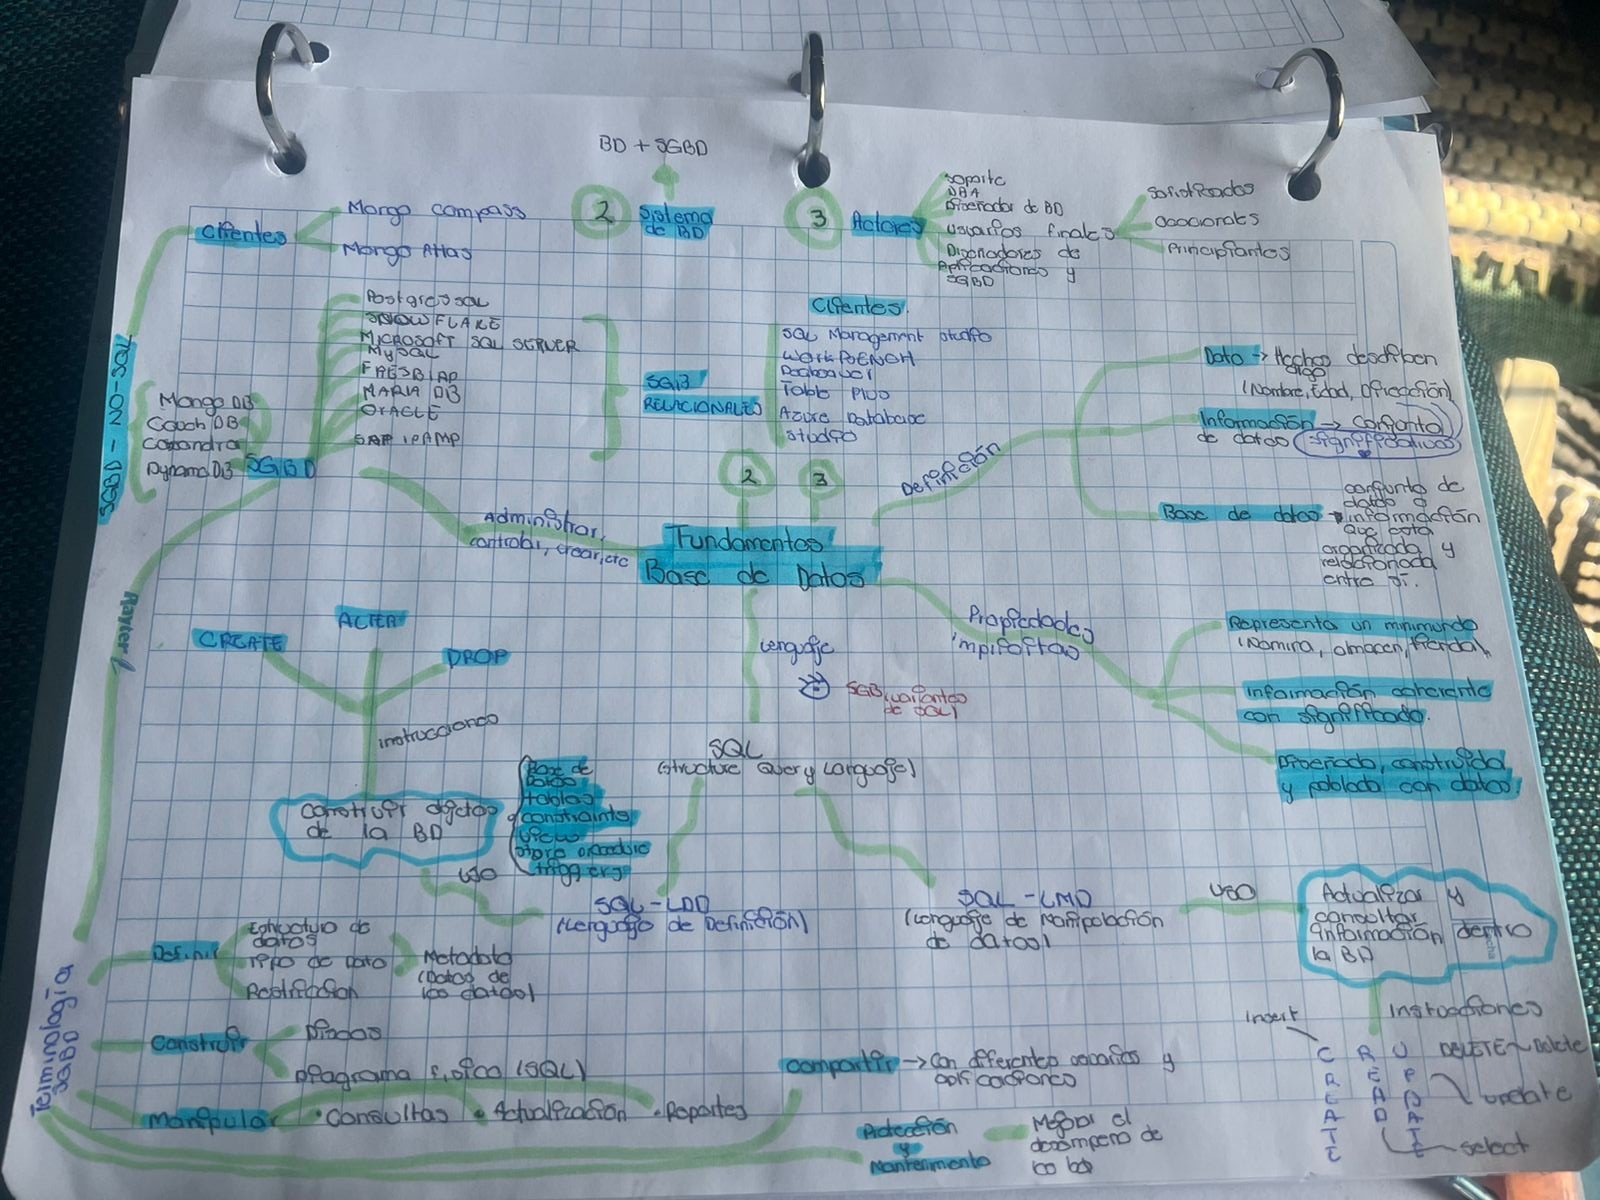 BD + SGBD
2
Sistema
de BD
3
Actores
Soporte
DBA
Diseñador de BD
Usuarios finales
Diseñadores de
Aplicaciones y
SGBD
Sofisticados
Ocacionales
Principiantes
Clientes
Mongo Compass
Mongo Atlas
SGBD - NO-SQL
Mongo DB
Couch DB
Cassandra
Dynamo DB
SGBD
PostgresSQL
SNOWFLAKE
MICROSOFT SQL SERVER
MySQL
MARIA DB
ORACLE
SGB
RELACIONALES
Clientes.
SQL Management studio
Table Plus
Azure Database
studio
2
3
Definición
Dato → Hechos describen
algo
(Nombre, Edad, Dirección)
Información → conjunto
de datos significativos
Base de datos → conjunto de
datos o
información
que esta
organizada y
relacionada
entre si.
Administrar,
controlar, crear, etc
Fundamentos
Base de Datos
Propiedades
impilsitas
Representa un minimundo
(Nomina, almacen, tienda)
Información coherente
con significado.
Diseñada, construida
y poblada con datos.
CREATE
ALTER
DROP
instrucciones
Lenguaje
SGB (variantes
de SQL)
SQL
(structure Query Language)
Construir objetos
de la BD
Base de
datos
tablas
constraints
views
triggers
uso
SQL-LDD
(Lenguaje de Definición)
SQL-LMD
(Lenguaje de Manipulación
de datos)
uso
Actualizar y
consultar
información dentro
la BD
Instrucciones
Insert
CREATE
READ
UPDATE
DELETE
Delete
update
select
Terminología
SGBD
Definir
Estructura de
datos
Tipo de Dato
Metadata
(Datos de
los datos)
Construir
Diagrama físico (SQL)
Manipular
• Consultas • Actualización • Reportes
Compartir → Con diferentes usuarios y
aplicaciones
y
Mantenimiento
Mejorar el
desempeño de